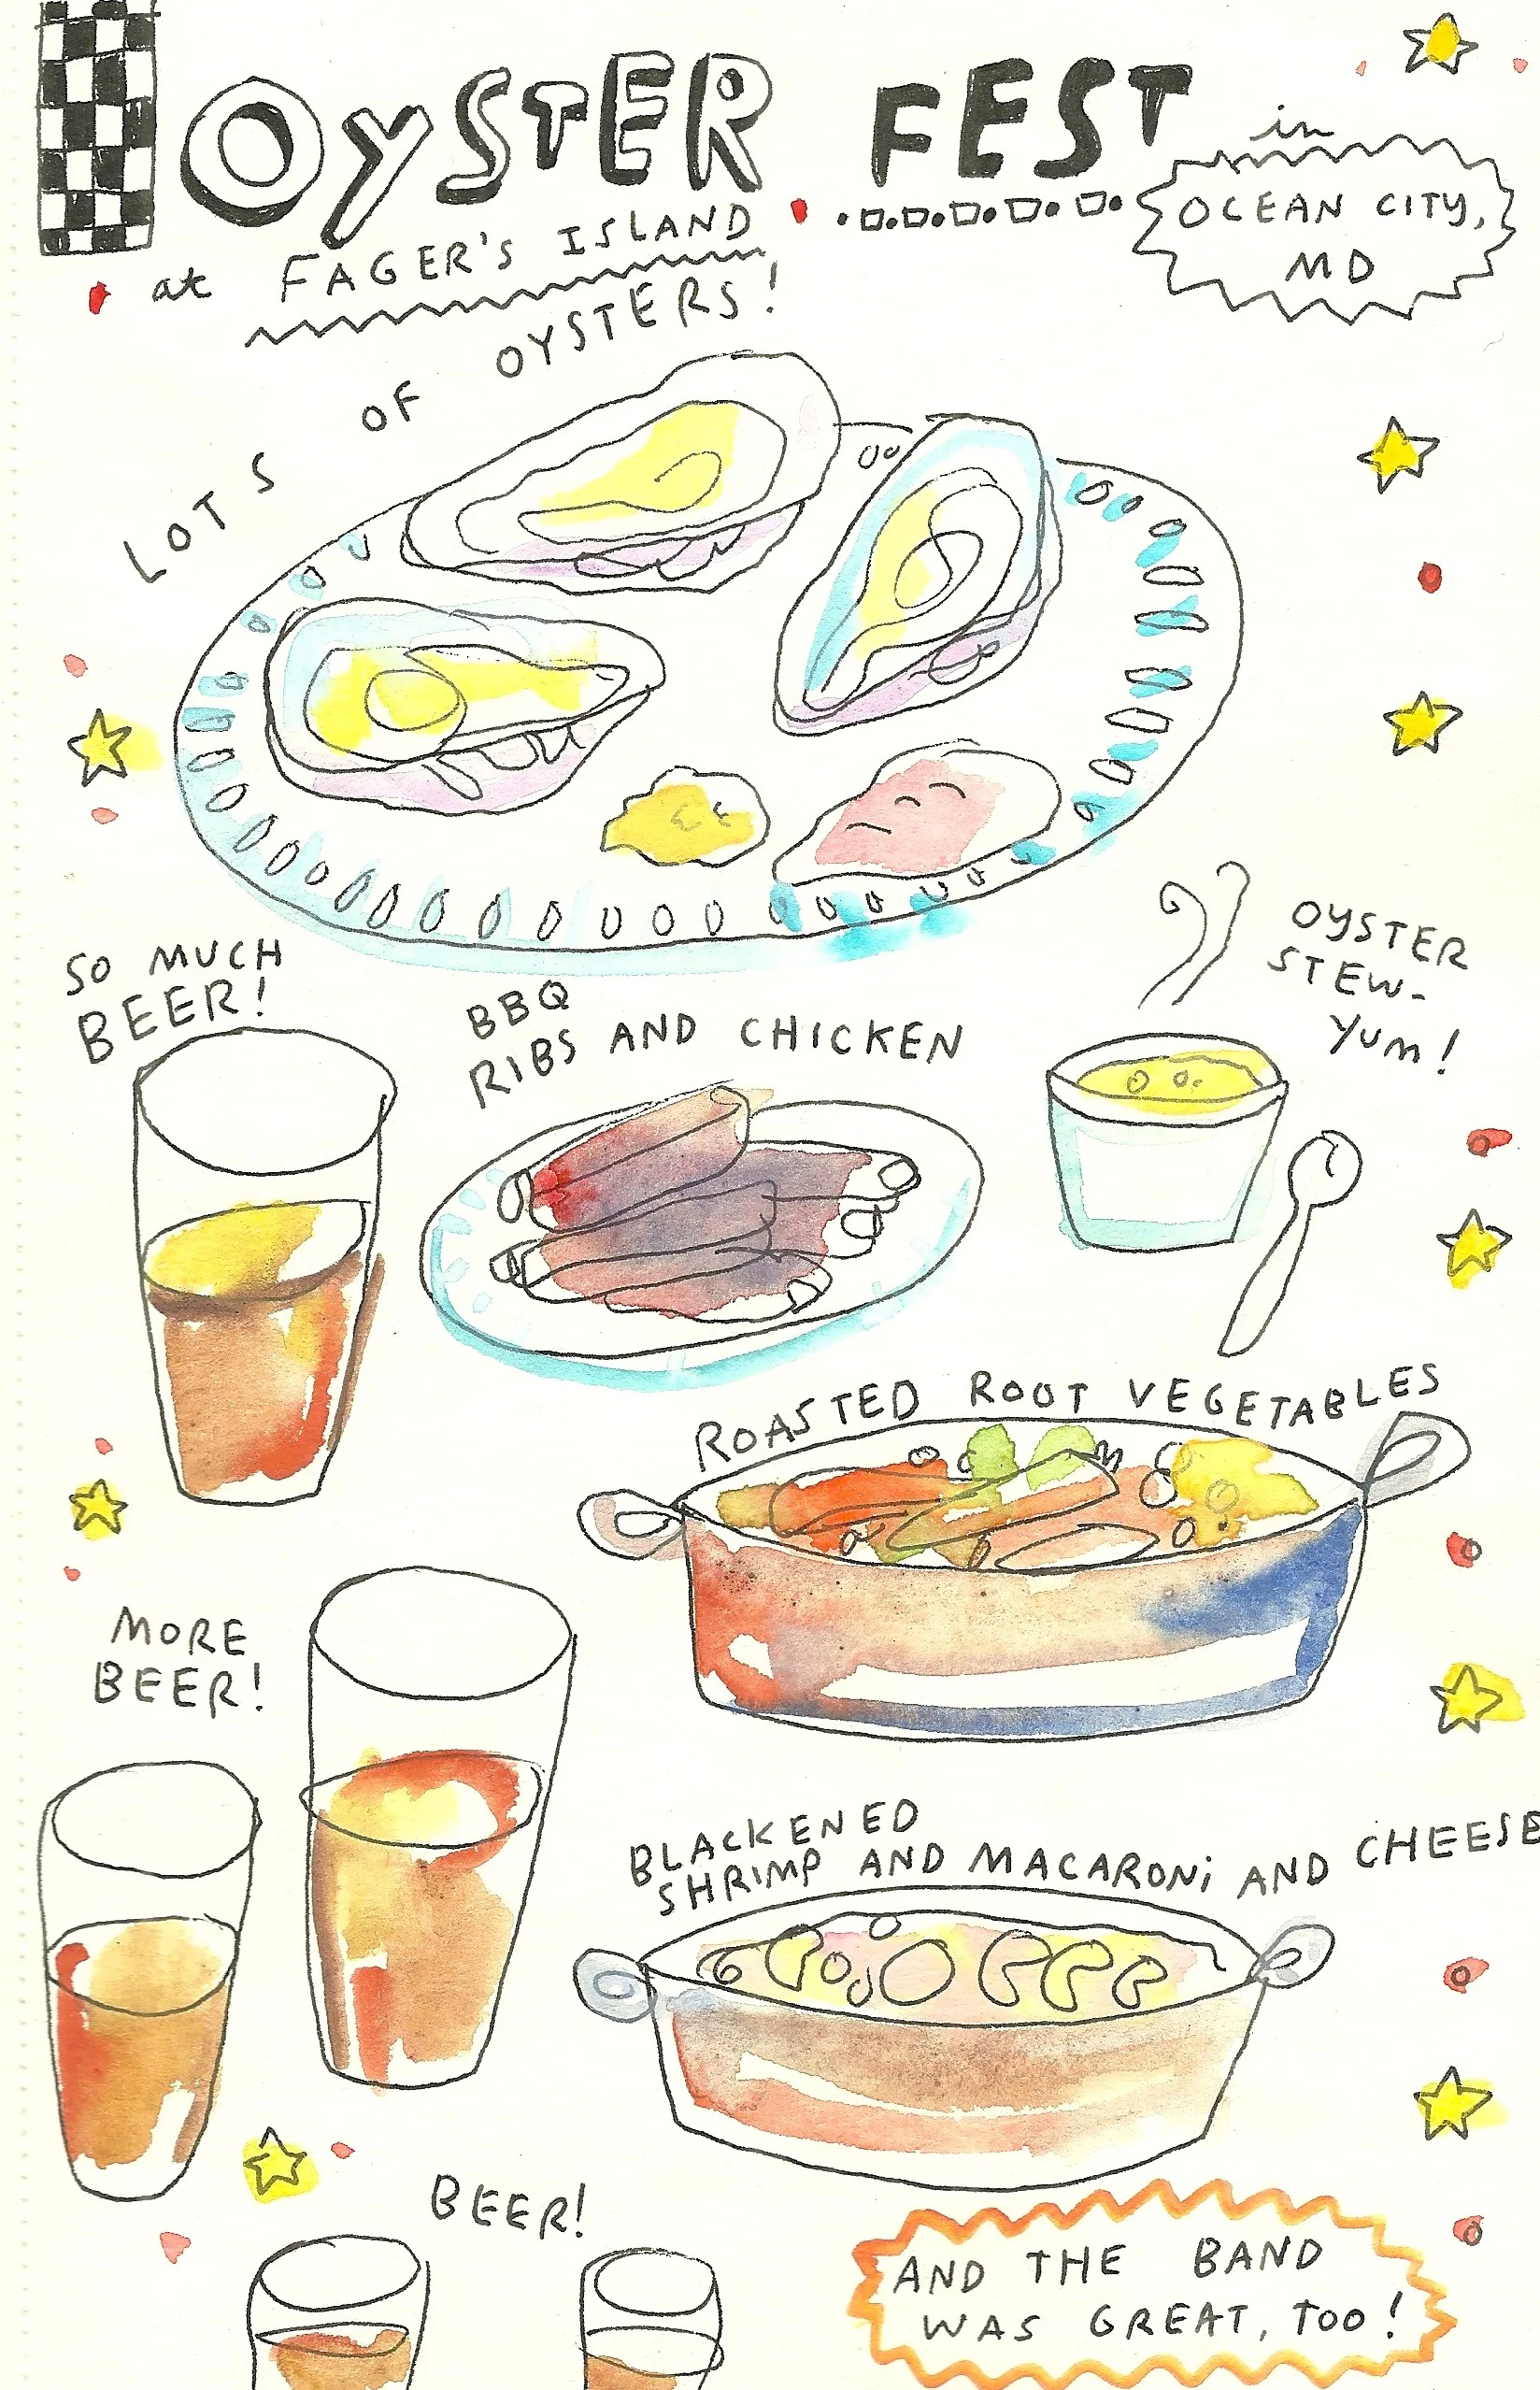 OYSTER FEST
in
OCEAN CITY,
MD
at FAGER'S ISLAND
LOTS OF OYSTERS!
SO MUCH
BEER!
BBQ
RIBS AND CHICKEN
OYSTER
STEW-
YUM!
ROASTED ROOT VEGETABLES
MORE
BEER!
BLACKENED
SHRIMP AND MACARONi AND CHEESE
BEER!
AND THE BAND
WAS GREAT, TOO!